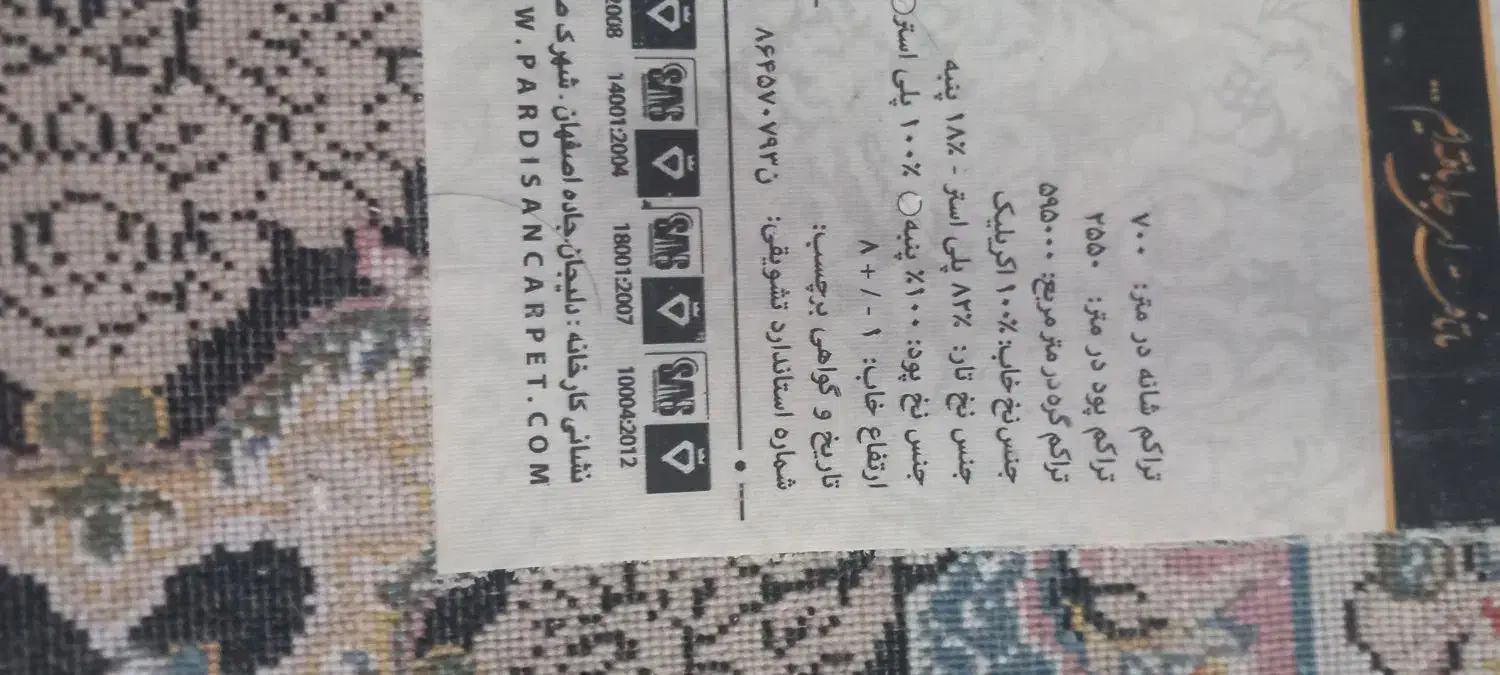 تراکم شانه در متر: ۷۰۰
تراکم پود در متر: ۲۵۵۰
تراکم گره در متر مربع: ۵۹۵۰۰۰
جنس نخ خاب: ۱۰۰٪ اکریلیک
جنس نخ تار: ۸۲٪ پلی استر - ۱۸٪ پنبه
جنس نخ پود: ۱۰۰٪ پنبه ۱۰۰٪ پلی استر
ارتفاع خاب: ۱ - / + ۸
تاریخ و گواهی برچسب:
شماره استاندارد تشویقی: ن۸۶۴۵۷۰۷۹۳
10004:2012 18001:2007 14001:2004 2008
نشانی کارخانه: دلیجان، جاده اصفهان. شهرک
W.PARDISANCARPET.COM